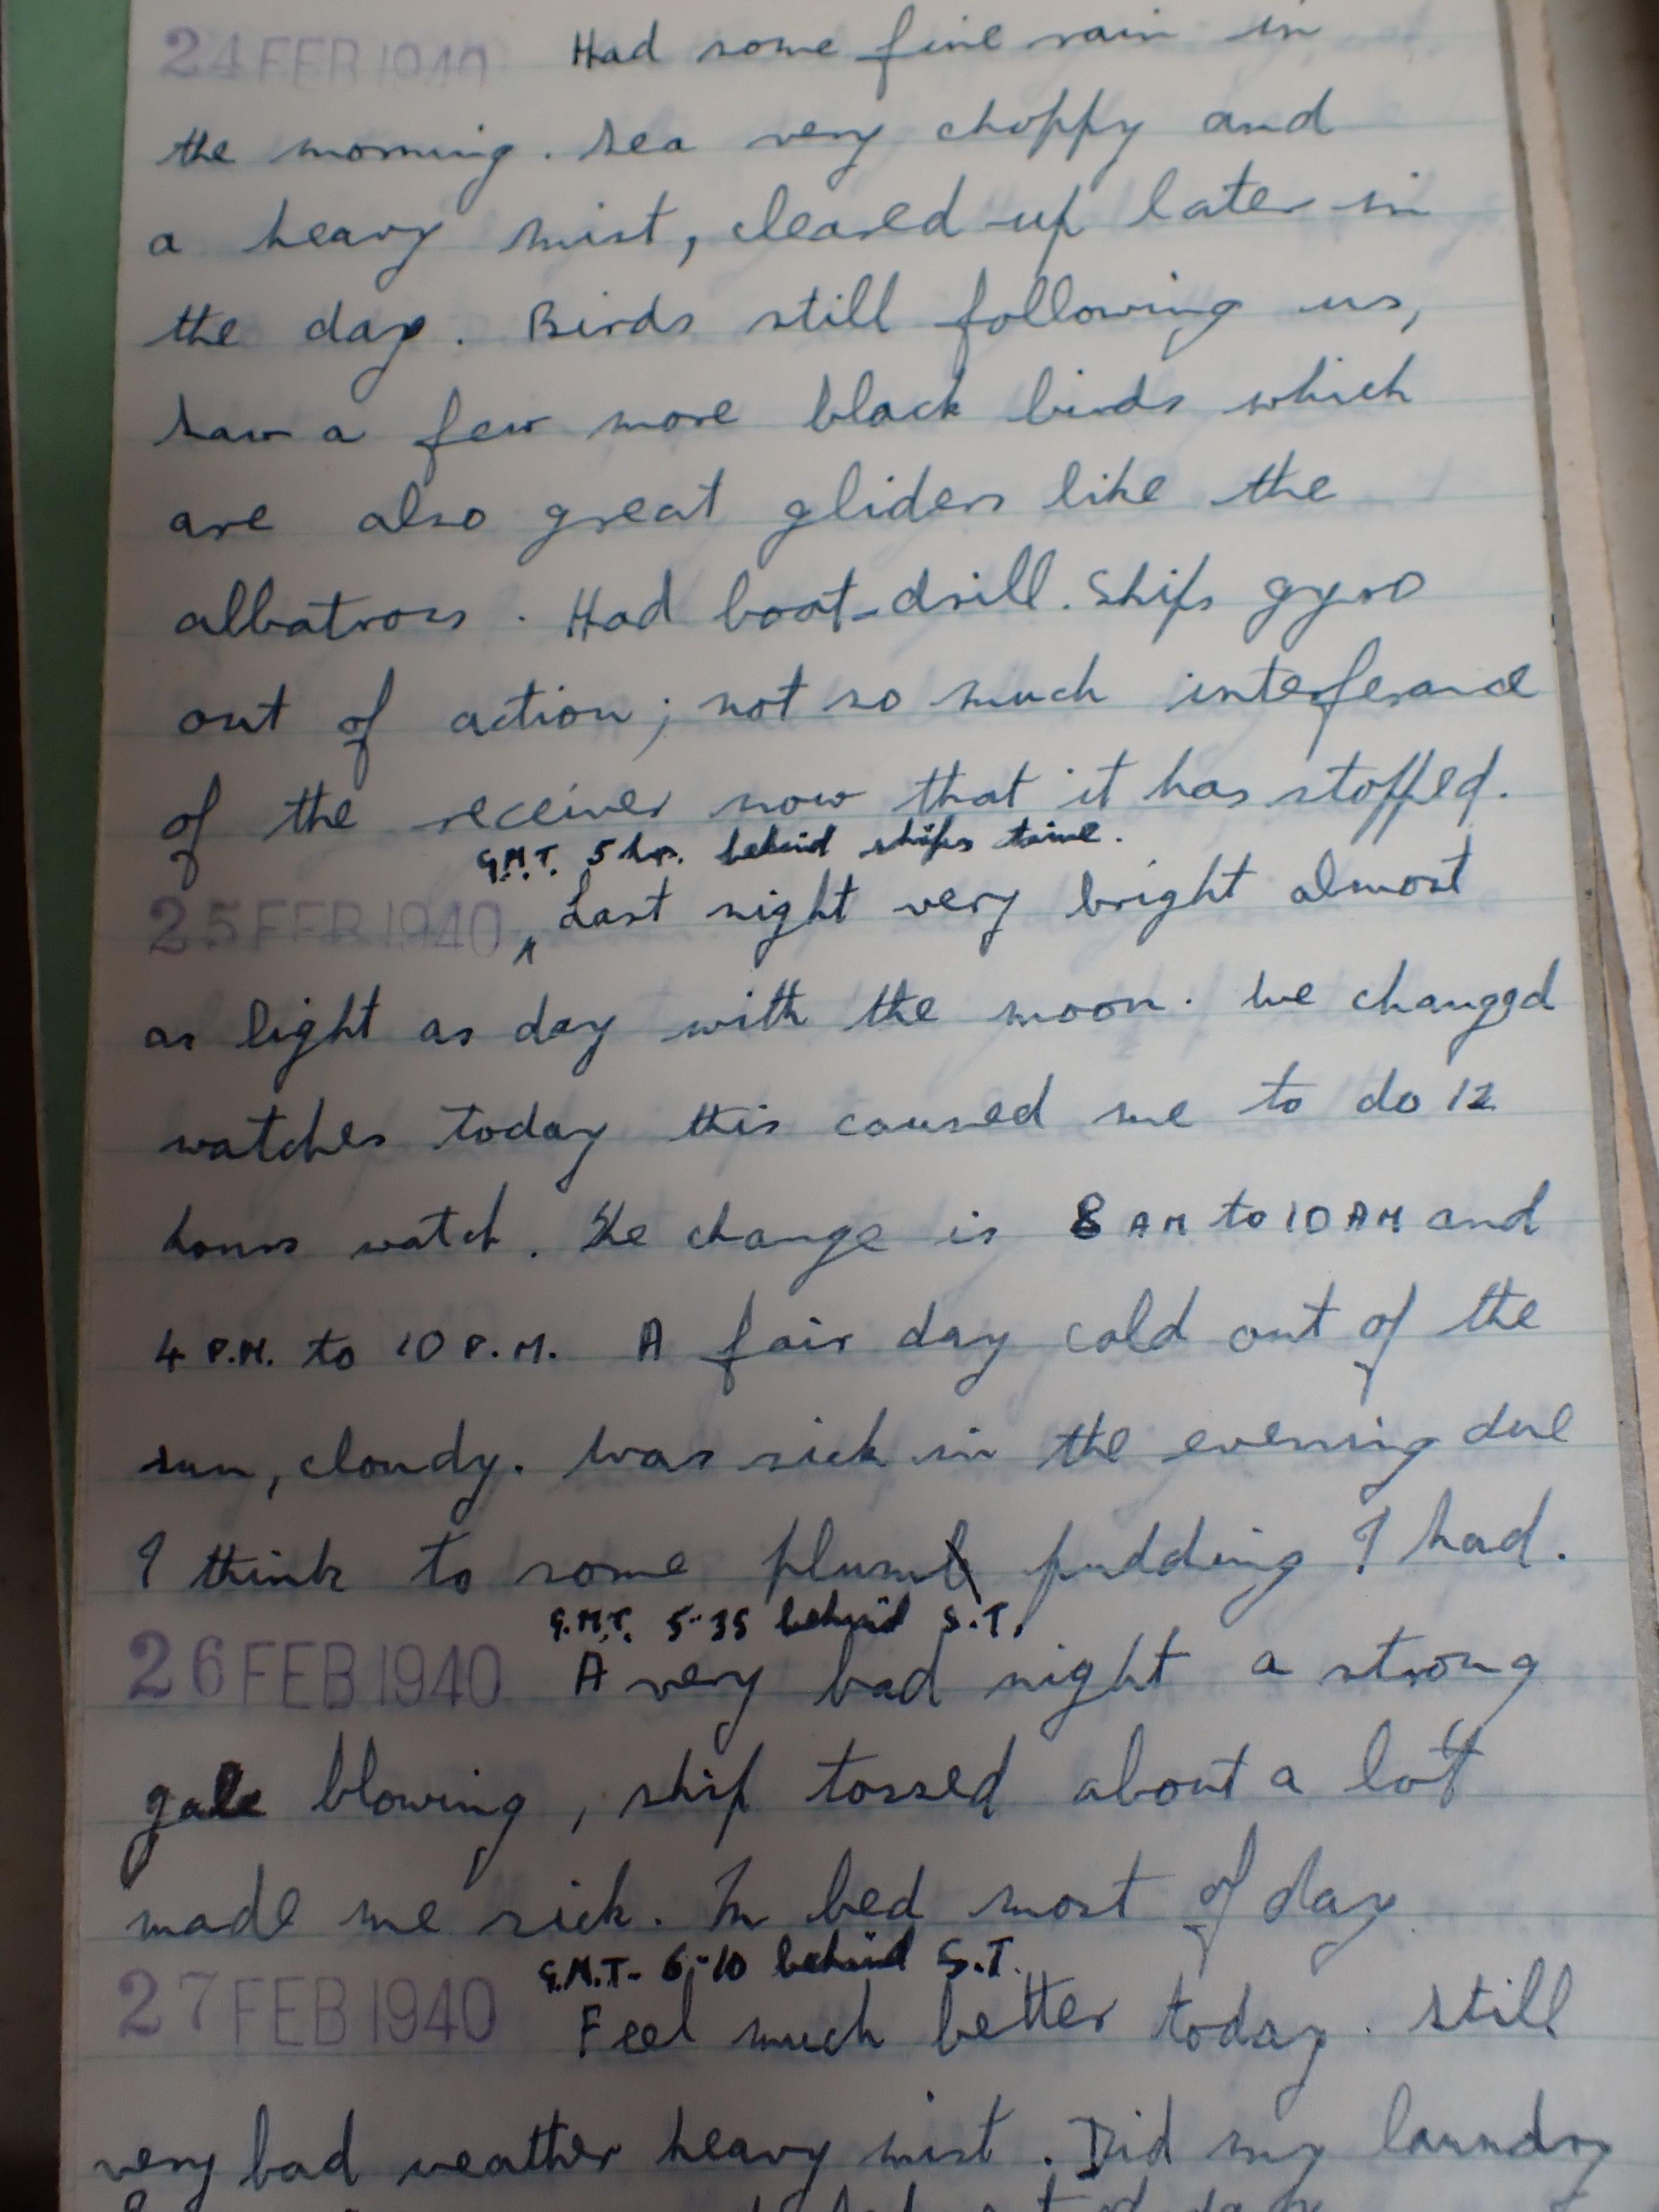 24 FEB 1940 Had some fine rain in
the morning. Sea very choppy and
a heavy mist, cleared-up later in
the day. Birds still following us,
saw a few more black birds which
are also great gliders like the
albatross. Had boat-drill. Ships gyro
out of action; not so much interferance
of the receiver now that it has stopped.
G.M.T. 5 hrs. behind ships time.
25 FEB 1940 ^ Last night very bright almost
as light as day with the moon. We changed
watches today this caused me to do 12
hours watch. The change is 8 AM to 10 AM and
4 P.M. to 10 P.M. A fair day cold out of the
sun, cloudy. Was sick in the evening due
I think to some plum pudding I had.
G.M.T. 5-35 behind S.T.
26 FEB 1940 A very bad night a strong
gale blowing, ship tossed about a lot
made me sick. In bed most of day
G.M.T. 6-10 behind S.T.
27 FEB 1940 Feel much better today. Still
very bad weather heavy mist. Did my laundry